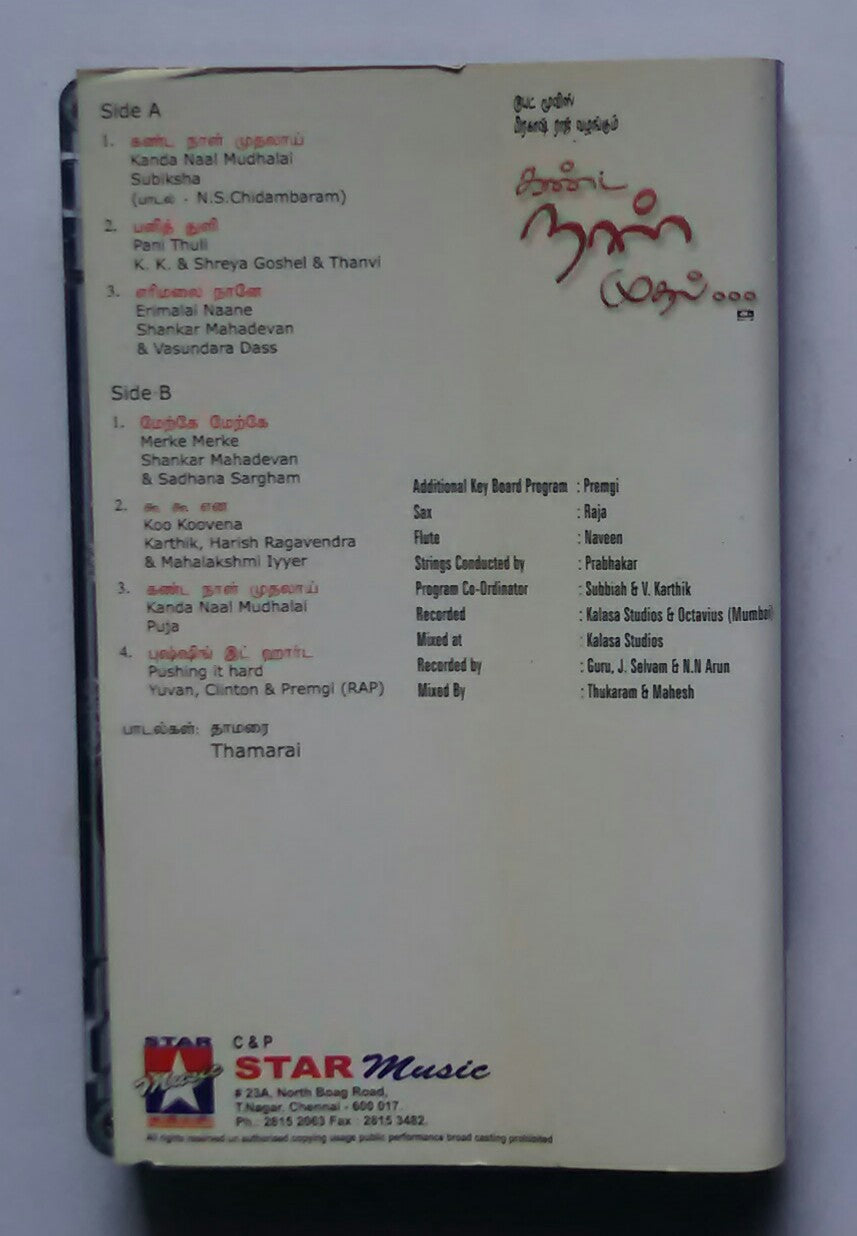 Side A
1. கண்ட நாள் முதலாய்
Kanda Naal Mudhalai
Subiksha
(பாடல் - N.S.Chidambaram)
2. பனித் துளி
Pani Thuli
K. K. & Shreya Goshel & Thanvi
3. எரிமலை நானே
Erimalai Naane
Shankar Mahadevan
& Vasundara Dass
Side B
1. மேற்கே மேற்கே
Merke Merke
Shankar Mahadevan
& Sadhana Sargham
2. கூ கூ என
Koo Koovena
Karthik, Harish Ragavendra
& Mahalakshmi Iyyer
3. கண்ட நாள் முதலாய்
Kanda Naal Mudhalai
Puja
4. புஷ்ஷிங் இட் ஹார்ட
Pushing it hard
Yuvan, Clinton & Premgi (RAP)
பாடல்கள்: தாமரை
Thamarai
டூயட் மூவிஸ்
பிரகாஷ் ராஜ் வழங்கும்
கண்ட
நாள்
முதல்...
Additional Key Board Program : Premgi
Sax : Raja
Flute : Naveen
Strings Conducted by : Prabhakar
Program Co-Ordinator : Subbiah & V. Karthik
Recorded : Kalasa Studios & Octavius (Mumbai)
Mixed at : Kalasa Studios
Recorded by : Guru, J. Selvam & N.N Arun
Mixed By : Thukaram & Mahesh
STAR
Music
C & P
STAR Music
# 23A, North Boag Road,
T.Nagar, Chennai - 600 017.
Ph.: 2815 2063 Fax : 2815 3482.
All rights reserved un authorised copying usage public performance broad casting prohibited